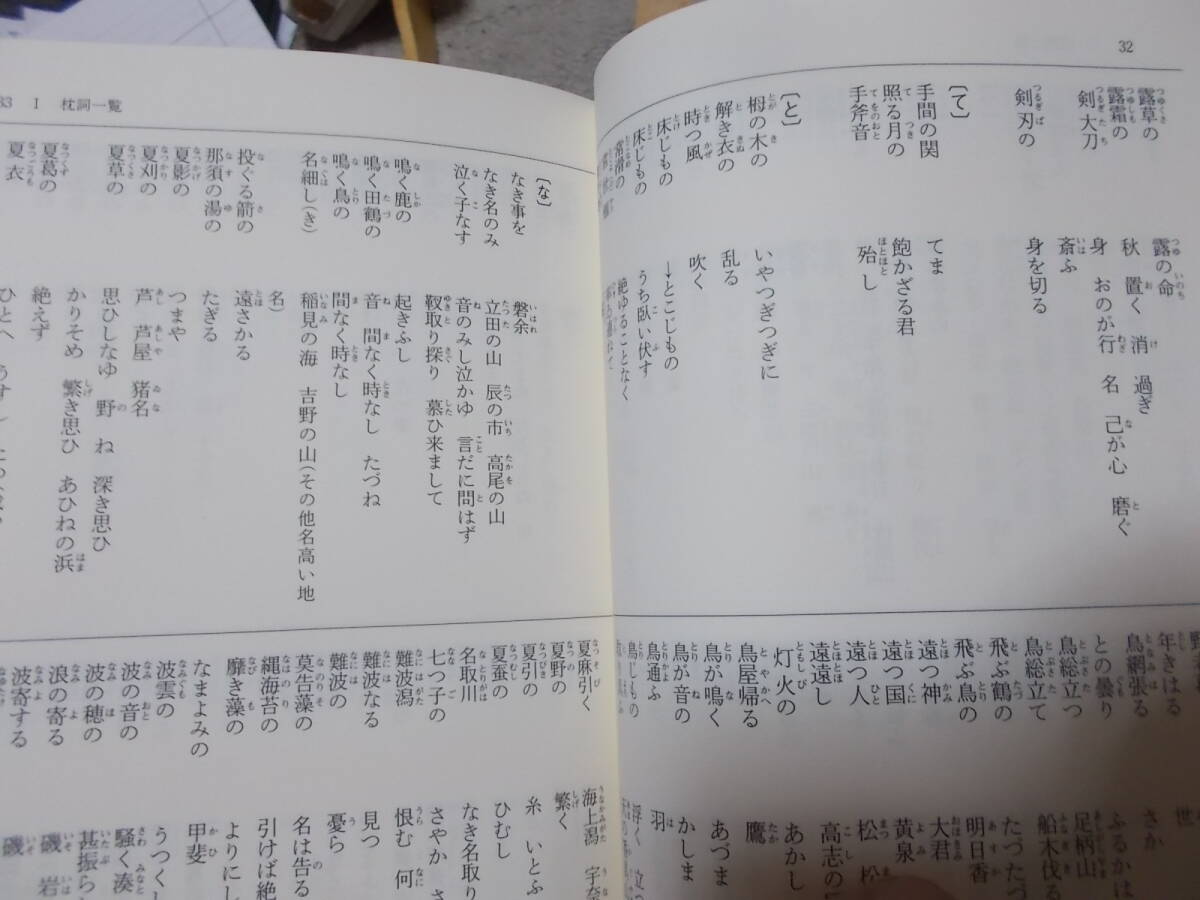 32
露草の 露の命
露霜の 秋 置く 消 過ぎ
剣大刀 身 おのが行 名 己が心 磨ぐ
斎ふ
剣刃の 身を切る
〔て〕
手間の関 てま
照る月の 飽かざる君
手斧音 殆し
〔と〕
栂の木の いやつぎつぎに
解き衣の 乱る
時つ風 吹く
床じもの →とこじもの
床じもの うち臥い伏す
常滑の 絶ゆることなく
年きはる 世
鳥網張る さか
との曇り ふるかは
鳥総立つ 足柄山
鳥総立て 船木伐る
飛ぶ鶴の たづたづ
飛ぶ鳥の 明日香
遠つ神 大君
遠つ国 黄泉
遠つ人 松 松
遠遠し 高志の
灯火の あかし
鳥屋帰る 鷹
鳥が鳴く あづま
鳥が音の かしま
鳥通ふ 羽
鳥じもの 浮く
33 I 枕詞一覧
〔な〕
なき事を 磐余
なき名のみ 立田の山 辰の市 高尾の山
泣く子なす 音のみし泣かゆ 言だに問はず
靫取り探り 慕ひ来まして
鳴く鹿の 起きふし
鳴く田鶴の 音 間なく時なし たづね
鳴く鳥の 間なく時なし
名細し(き) 稲見の海 吉野の山(その他名高い地
名)
投ぐる箭の 遠さかる
那須の湯の たぎる
夏影の つまや
夏刈の 芦 芦屋 猪名
夏草の 思ひしなゆ 野 ね 深き思ひ
かりそめ 繁き思ひ あひねの浜
夏葛の 絶えず
夏衣 ひとへ
夏麻引く 海上潟
夏野の 繁く
夏引の 糸 いとふ
夏蚕の ひむし
名取川 なき名取り
七つ子の さやか
難波潟 恨む 何
難波なる 見つ
難波の 憂ら
莫告藻の 名は告る
縄海苔の 引けば絶
靡き藻の よりにし
なまよみの 甲斐
波雲の うつくし
波の音の 騒ぐ湊
波の穂の 甚振ら
浪の寄る 磯 岩
波寄する 磯